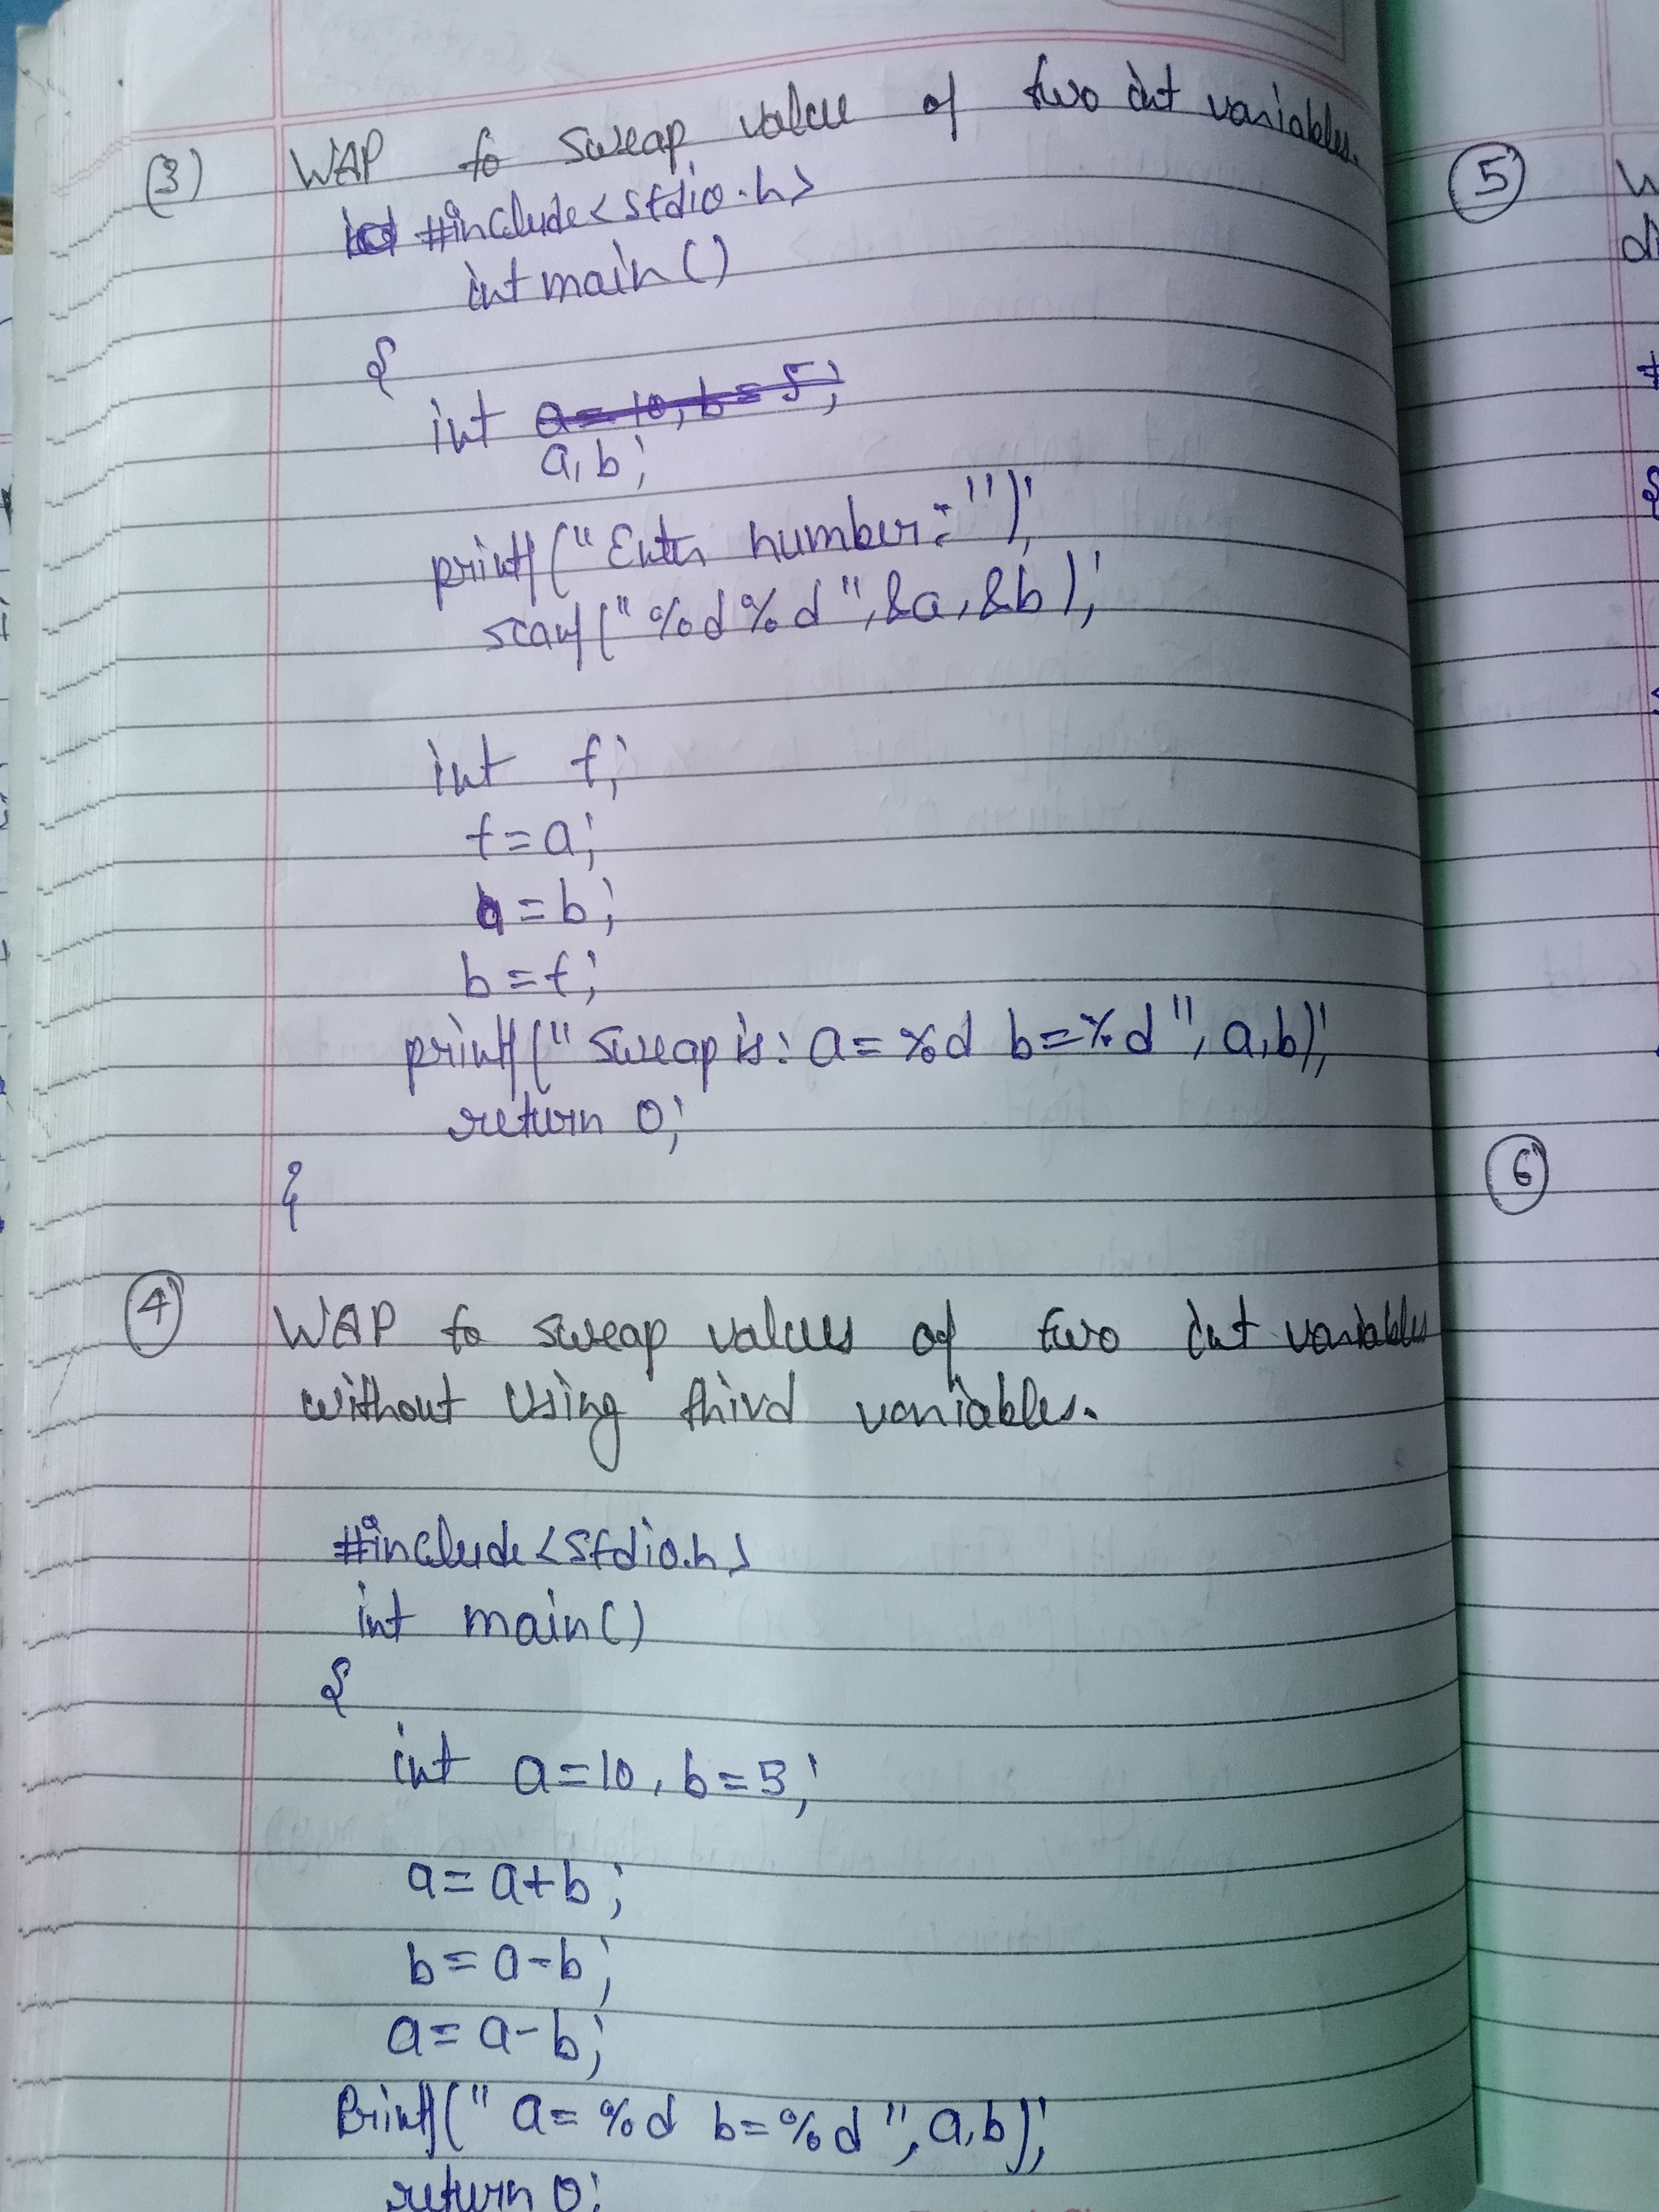 (3) WAP to sweap value of two int variables.
#include<stdio.h>
int main()
{
int a=10, b=5;
a,b;
printf("Enter number:");
scanf("%d%d",&a,&b);
int t;
t=a;
a=b;
b=t;
printf("Sweap is: a=%d b=%d", a,b);
return 0;
}
4 WAP to sweap values of two int variables
without using third variables.
#include<stdio.h>
int main()
{
int a=10, b=5;
a=a+b;
b=a-b;
a=a-b;
Printf("a=%d b=%d",a,b);
return 0;
5
6